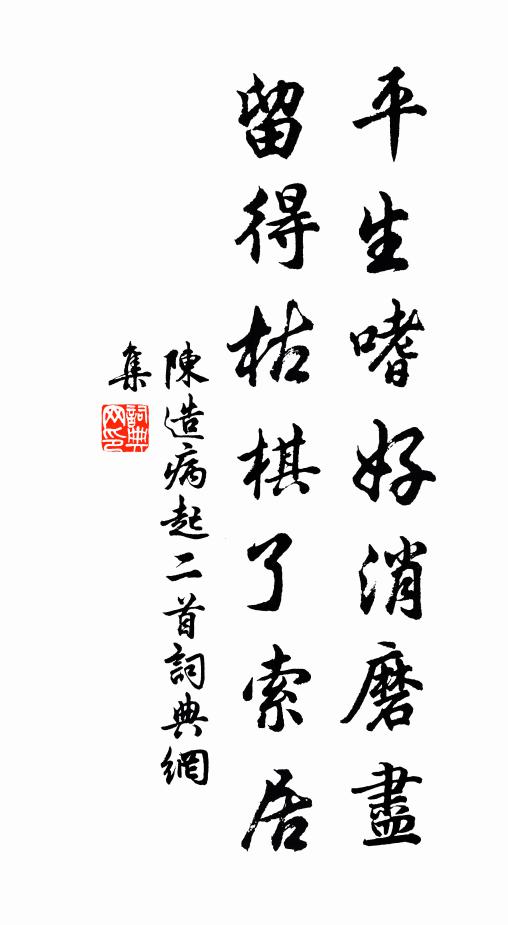 平生嗜好消磨盡
留得枯棋了索居
陳造病起二首詞典網
集
詞典網印